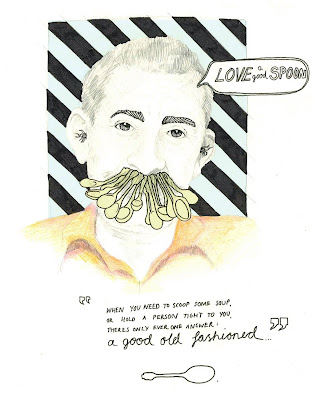 LOVE a good SPOON
" WHEN YOU NEED TO SCOOP SOME SOUP,
OR HOLD A PERSON TIGHT TO YOU
THERES ONLY EVER ONE ANSWER:
a good old fashioned... "